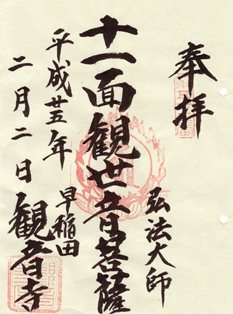 奉拝
弘法大師
十一面観世音菩薩
早稲田
観音寺
平成廿五年
二月二日